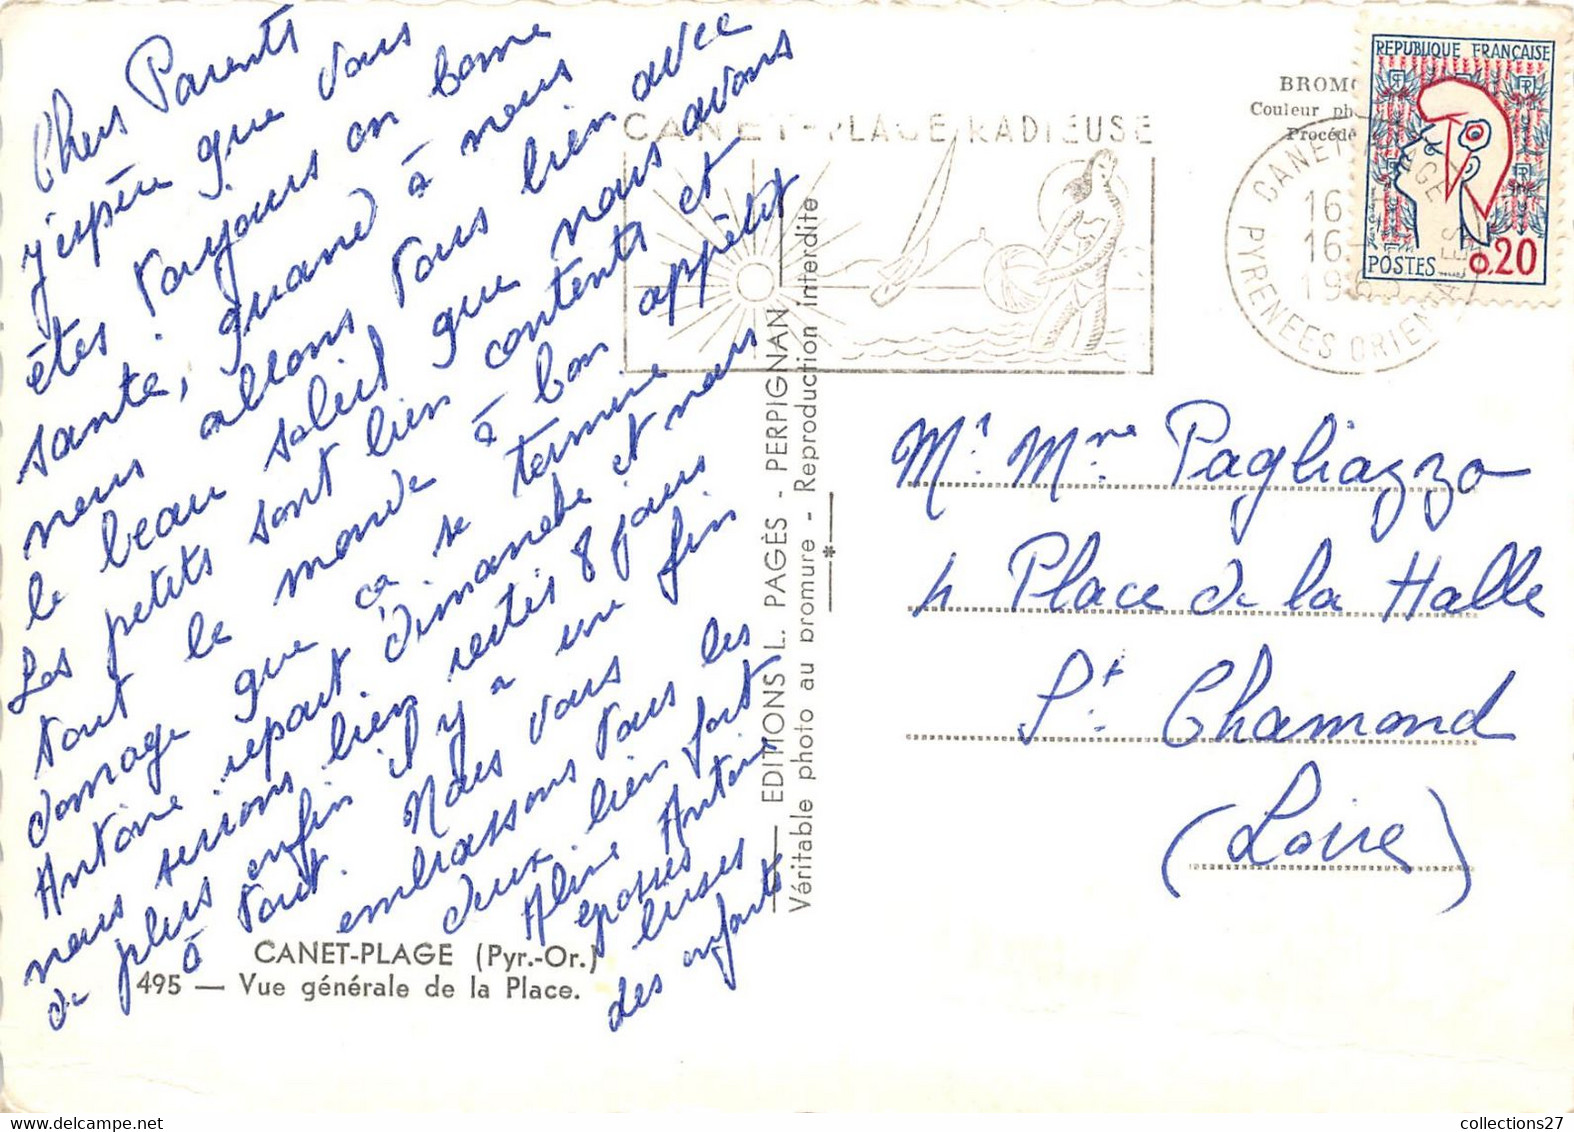 Chers Parents
j'espère que vous
êtes toujours en bonne
santé, quand à nous
nous allons tous bien avec
le beau soleil que nous avons
Les petits sont bien contents et
tout le monde à bon appétit
domage que ca se termine
Antoine repart dimanche et nous
nous serions bien restés 8 jours
de plus enfin il y à une fin
à tout. Nous vous
embrassons tous les
deux bien fort
Aline Antoine
grosses
bises
des enfants
CANET-PLAGE (Pyr.-Or.)
495 — Vue générale de la Place.
EDITIONS L. PAGÈS - PERPIGNAN
Véritable photo au bromure - Reproduction interdite
CANET-PLAGE RADIEUSE
BROM
Couleur ph
Procédé
CANET PLAGE
16
16
19
PYRENEES ORIENTALES
REPUBLIQUE FRANÇAISE
POSTES 0,20
Mr. Mme Pagliazzo
4 Place de la Halle
St. Chamond
(Loire)
collections27